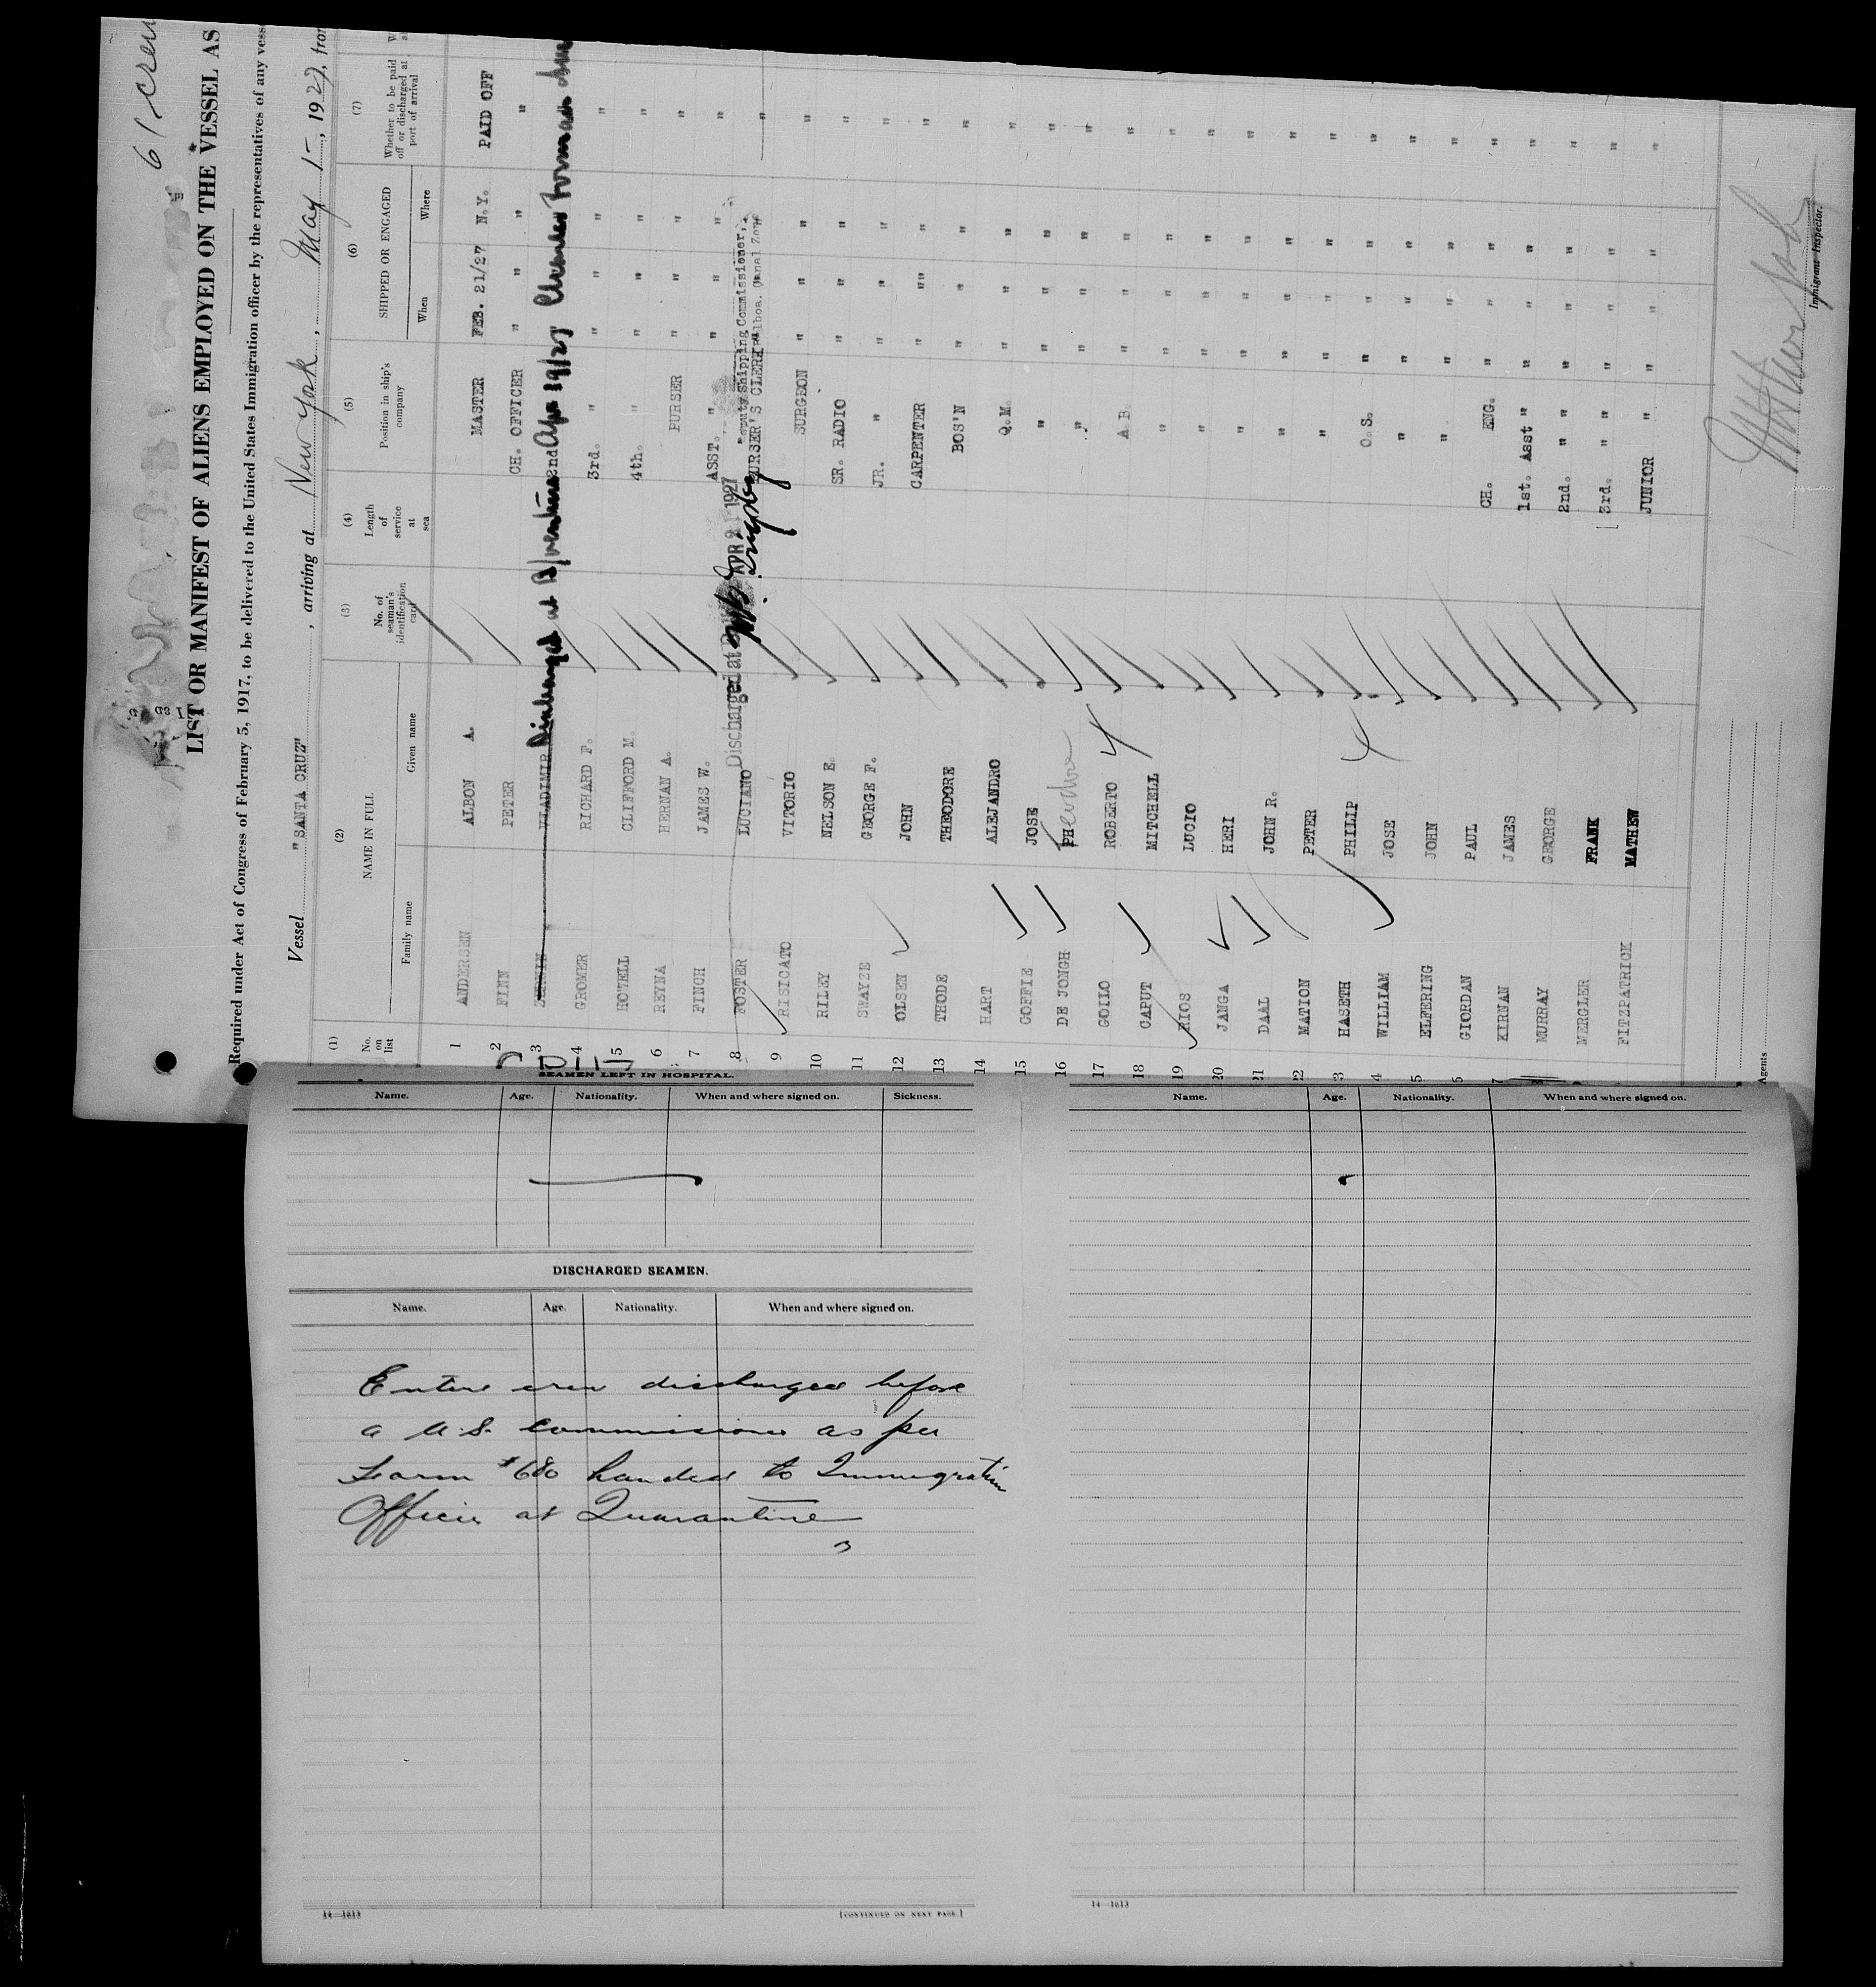 61 crew
LIST OR MANIFEST OF ALIENS EMPLOYED ON THE VESSEL AS
Required under Act of Congress of February 5, 1917, to be delivered to the United States Immigration officer by the representatives of any vess
Vessel "SANTA CRUZ", arriving at New York, May 1-, 1927, from
(1) (2) (3) (4) (5) (6) (7)
No. on list NAME IN FULL No. of seaman's identification card Length of service at sea Position in ship's company SHIPPED OR ENGAGED Whether to be paid off or discharged at port of arrival
Family name Given name When Where
1 ANDERSEN ALBON A. MASTER FEB. 21/27 N.Y. PAID OFF
2 FINN PETER CH. OFFICER " " " "
3 VLADIMIR Discharged at 2nd Apr 19/27
4 GROMER RICHARD F. 3rd. " " " " "
5 HOWELL CLIFFORD M. 4th. " " " " "
6 REYNA HERNAN A. PURSER " " " "
7 FINCH JAMES W. ASST. " " " " "
Discharged at APR 2 1927 Deputy Shipping Commissioner, Balboa, Canal Zone
8 FOSTER LUCIANO PURSER'S CLERK " "
9 RISICATO VITORIO SURGEON " " " "
10 RILEY NELSON E. SR. RADIO " " " "
11 SWAYZE GEORGE F. JR. " " " " "
12 OLSEN JOHN CARPENTER " " " "
13 THODE THEODORE BOS'N " " " "
14 HART ALEJANDRO Q.M. " " " "
15 COFFIE JOSE " " " " "
16 DE JONGH Theodore " " " " "
17 GOILO ROBERTO A.B. " " " "
18 CAPUT MITCHELL " " " " "
19 RIOS LUCIO " " " " "
20 JANGA HERI " " " " "
21 DAAL JOHN R. " " " " "
2 MATION PETER " " " " "
3 HASETH PHILIP O.S. " " " "
4 WILLIAM JOSE " " " " "
5 ELFERING JOHN " " " " "
5 GIORDAN PAUL CH. ENG. " " " "
7 KIRNAN JAMES 1st. Asst " " " " "
MURRAY GEORGE 2nd. " " " " " "
MERGLER FRANK 3rd. " " " " " "
FITZPATRICK MATHEW JUNIOR " " " " "
Agents
Immigrant Inspector.
SEAMEN LEFT IN HOSPITAL.
Name. Age. Nationality. When and where signed on. Sickness.
DISCHARGED SEAMEN.
Name. Age. Nationality. When and where signed on.
Entire crew discharged before
a U.S. Commissioner as per
Form #680 handed to Immigration
Officer at Quarantine
14—1613
[CONTINUED ON NEXT PAGE.]
Name. Age. Nationality. When and where signed on.
14—1613